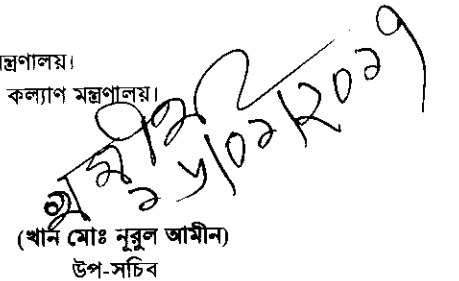 মন্ত্রণালয়।
কল্যাণ মন্ত্রণালয়।
(খান মোঃ নূরুল আমীন)
উপ-সচিব